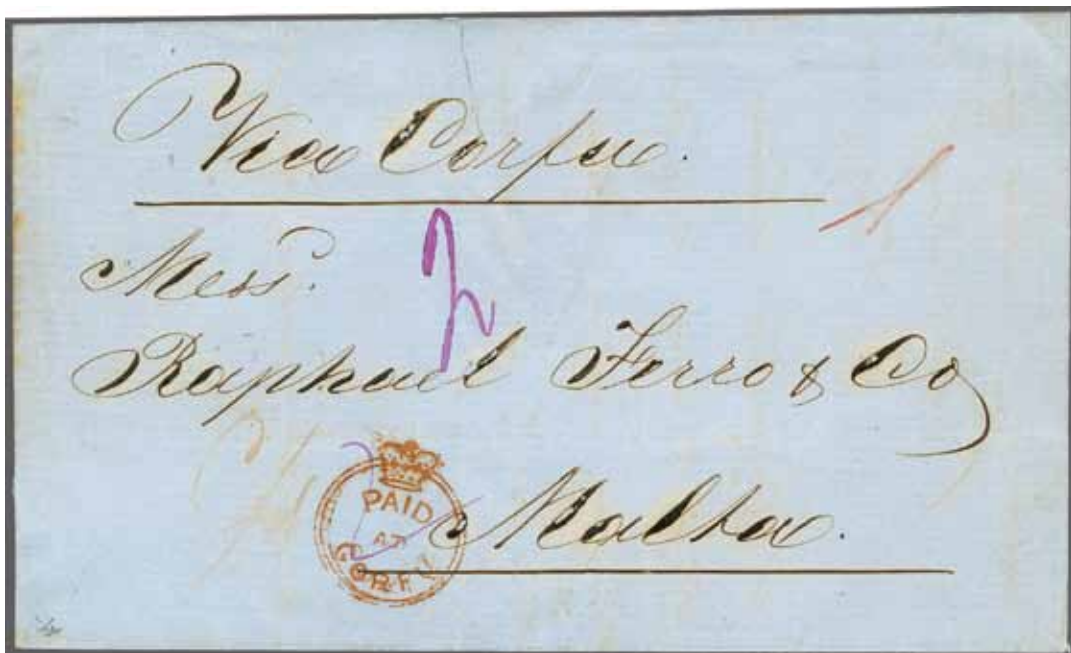 Via Corfu.
Mess.
Raphael Ferro & Co
PAID
AT
CORFU
Malta.